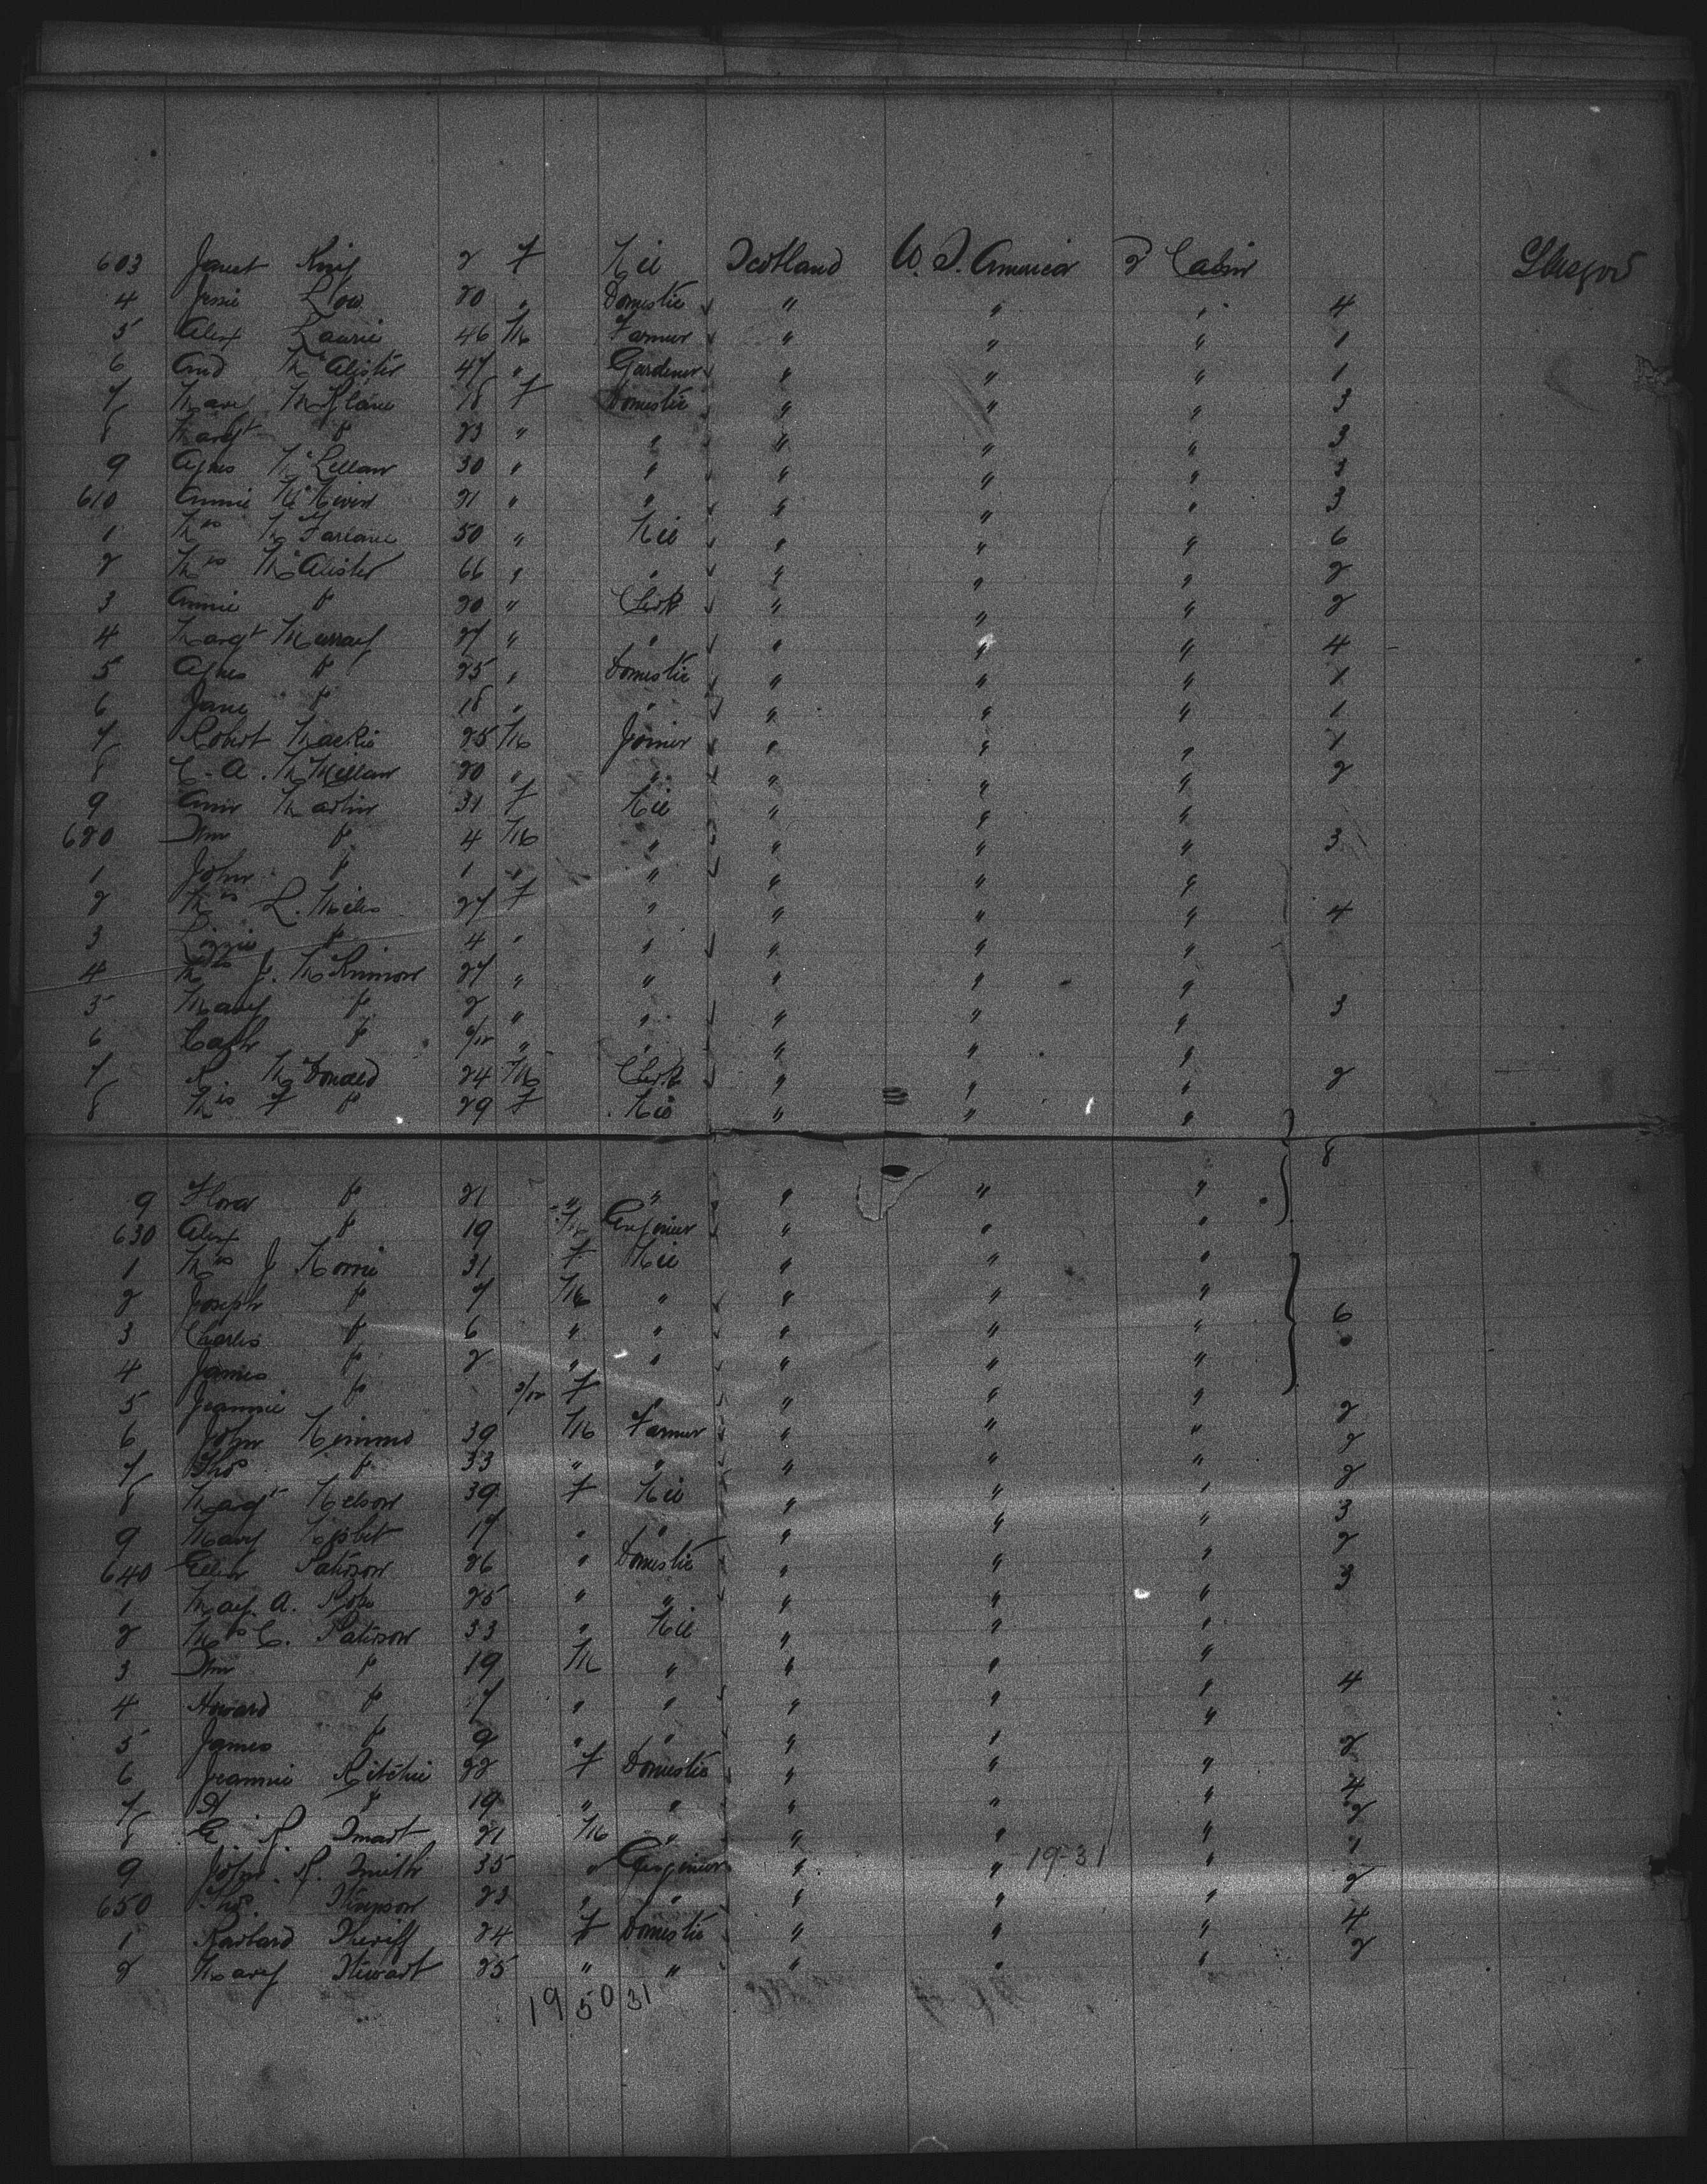 603 Janet King 2 F Nil Scotland U. S. America 2 Cabin Glasgow
4 Jessie Low 20 " Domestic " " " 4
5 Alex Laurie 46 M Farmer " " " 1
6 And McAlister 47 " Gardener " " " 1
7 Mary McKlane 18 F Domestic " " " 3
8 Margt Do 23 " " " " " 3
9 Agnes McLellan 30 " " " " " 3
610 Annie McNiven 21 " " " " " 3
1 Mrs McFarlane 50 " Nil " " " 6
2 Mrs McAlister 66 " " " " " 2
3 Annie Do 20 " Clerk " " " 2
4 Margt Murray 27 " " " " " 4
5 Agnes Do 25 " Domestic " " " 1
6 Jane Do 18 " " " " " 1
7 Robert Mackie 25 M Joiner " " " 1
8 C. A. McMillan 20 " " " " " 2
9 Ann Martin 31 F Nil " " "
620 Wm Do 4 M " " " " 3
1 John Do 1 " " " " "
2 Mrs L. Miles 27 F " " " " 4
3 Lizzie Do 4 " " " " "
4 Mrs J. McKinnon 27 " " " " "
5 Mary Do 2 " " " " " 3
6 Cath Do " " " " "
7 R. McDonald 24 M Clerk " " " 2
8 Mrs F Do 29 F Nil " " "
8
9 Flora Do 21 " " " " "
630 Alex Do 19 M Engineer " " "
1 Mrs J Norrie 31 F Nil " " "
2 Joseph Do 7 M " " " "
3 Charles Do 6 " " " " " 6
4 James Do 2 " " " " "
5 Jeannie Do 3/12 F " " " "
6 John Nimmo 39 M Farmer " " " 2
7 Thos Do 33 " " " " " 2
8 Magt Nelson 39 F Nil " " " 2
9 Mary Nisbet 17 " " " " " 3
640 Ellen Paterson 26 " Domestic " " " 2
1 May A. 25 " " " " " 3
2 Mrs C. Paterson 33 " Nil " " "
3 Wm Do 19 M " " " "
4 Howard Do 7 " " " " " 4
5 James Do 9 " " " " "
6 Jeannie Ritchie 22 F Domestic " " " 2
7 Do 19 " " " " " 4
8 R. Smart 21 M " " " " 2
9 John. R. Smith 35 " Engineer " " 19-31 " 1
650 Thos. Simpson 23 " " " " " 2
1 Sheriff 24 F Domestic " " " 4
2 Mary Stewart 25 " " " " " 2
19 50 31